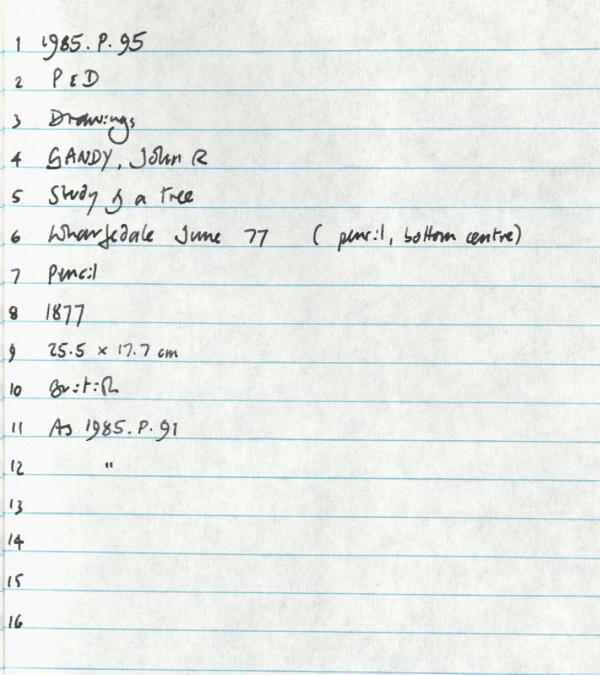 1 1985.P.95
2 P&D
3 Drawings
4 GANDY, John R
5 Study of a tree
6 Wharfedale June 77 ( pencil, bottom centre)
7 Pencil
8 1877
9 25.5 x 17.7 cm
10 British
11 As 1985.P.91
12 "
13
14
15
16